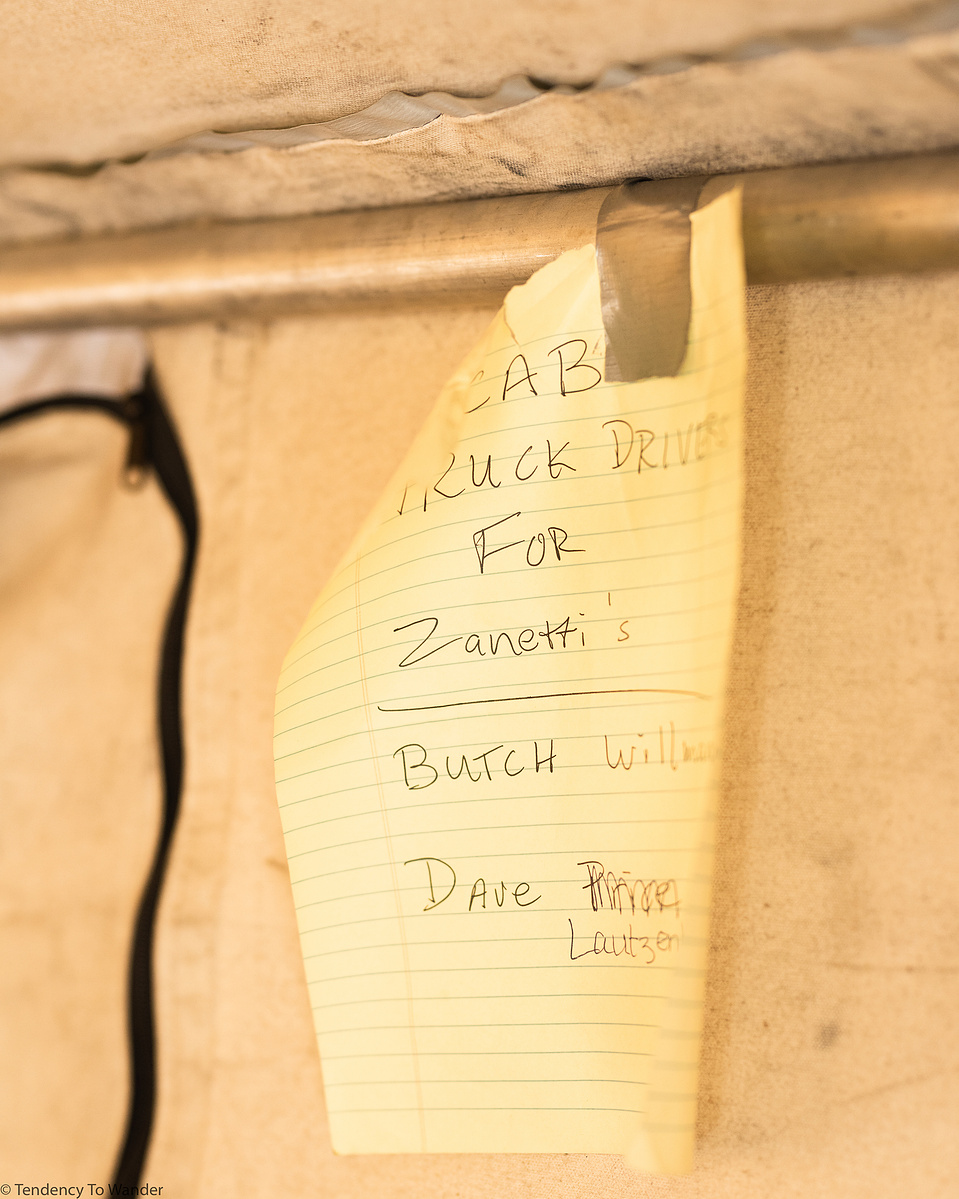 CAB
TRUCK DRIVERS
FOR
Zanetti's
BUTCH
DAVE
Lautzen
© Tendency To Wander